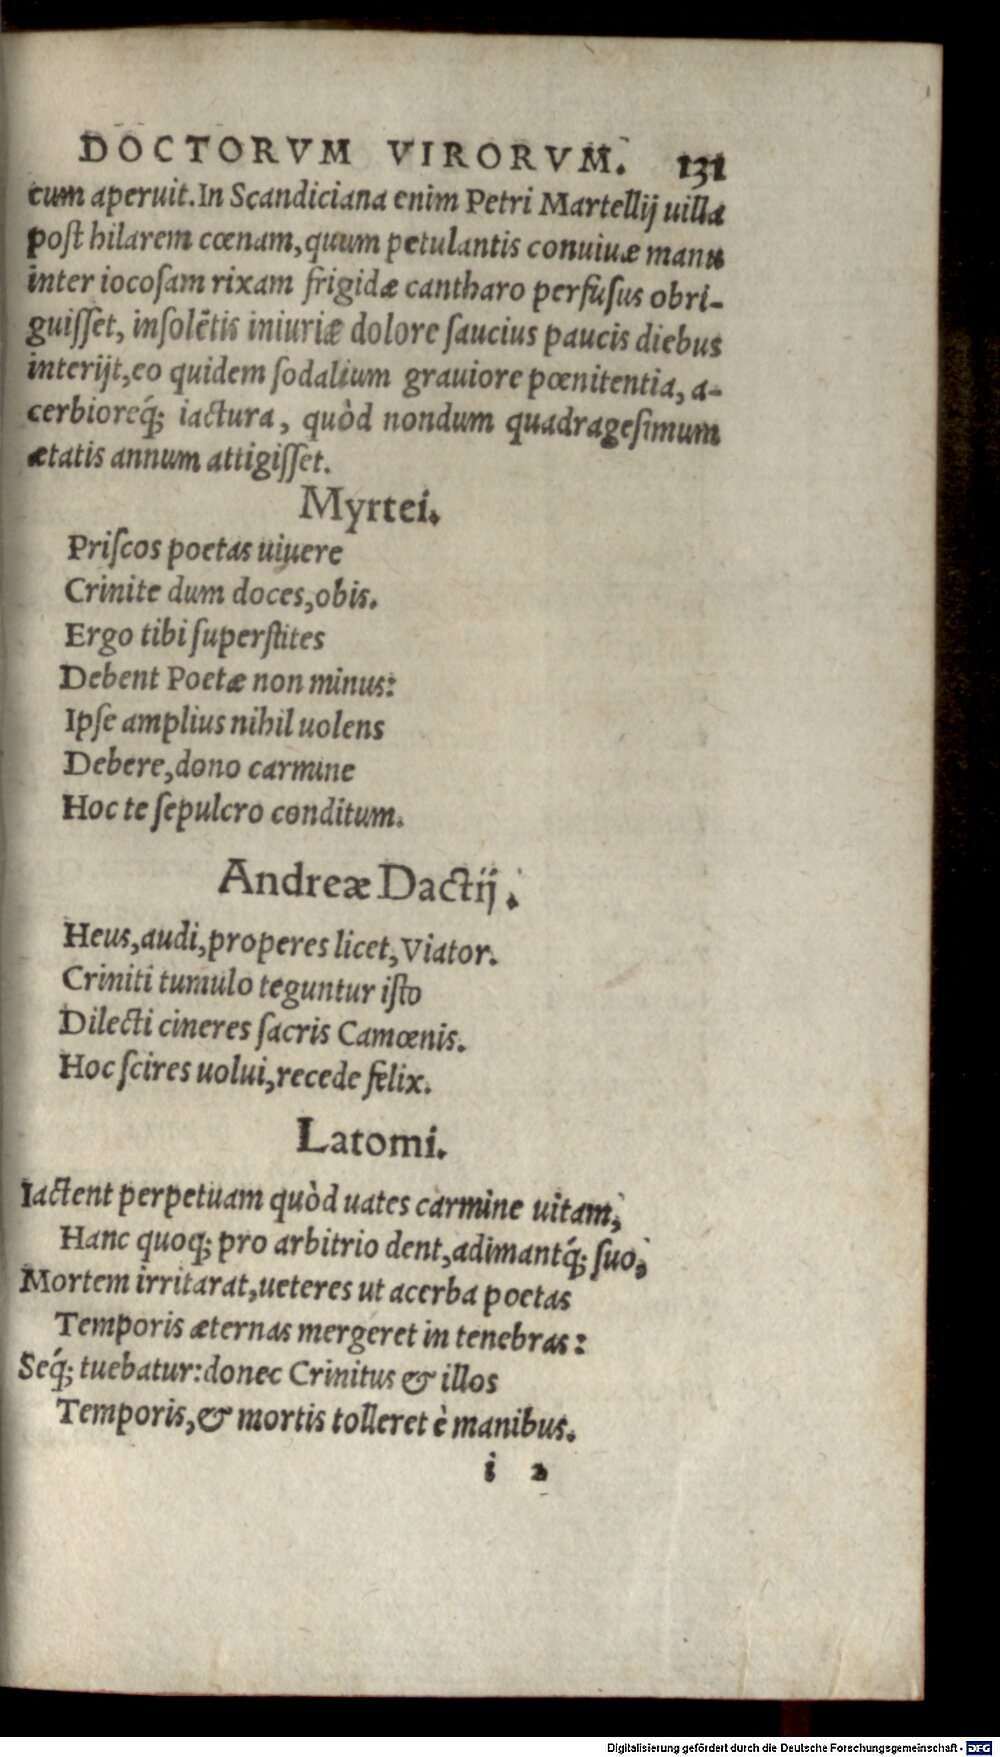 DOCTORVM VIRORVM. 131
cum aperuit. In Scandiciana enim Petri Martellij uilla
poſt hilarem cœnam, quum petulantis conuiuæ manu
inter iocoſam rixam frigidæ cantharo perfuſus obri-
guiſſet, inſolẽtis iniuriæ dolore ſaucius paucis diebus
interijt, eo quidem ſodalium grauiore pœnitentia, a-
cerbioreq́; iactura, quòd nondum quadrageſimum
ætatis annum attigiſſet.
Myrtei.
Priſcos poetas uiuere
Crinite dum doces, obis.
Ergo tibi ſuperſtites
Debent Poetæ non minus:
Ipſe amplius nihil uolens
Debere, dono carmine
Hoc te ſepulcro conditum.
Andreæ Dactij.
Heus, audi, properes licet, Viator.
Criniti tumulo teguntur iſto
Dilecti cineres ſacris Camœnis.
Hoc ſcires uolui, recede felix.
Latomi.
Iactent perpetuam quòd uates carmine uitam,
Hanc quoq; pro arbitrio dent, adimantq́; ſuo,
Mortem irritarat, ueteres ut acerba poetas
Temporis æternas mergeret in tenebras:
Seq́; tuebatur: donec Crinitus & illos
Temporis, & mortis tolleret è manibus.
i 2
Digitalisierung gefördert durch die Deutsche Forschungsgemeinschaft - DFG